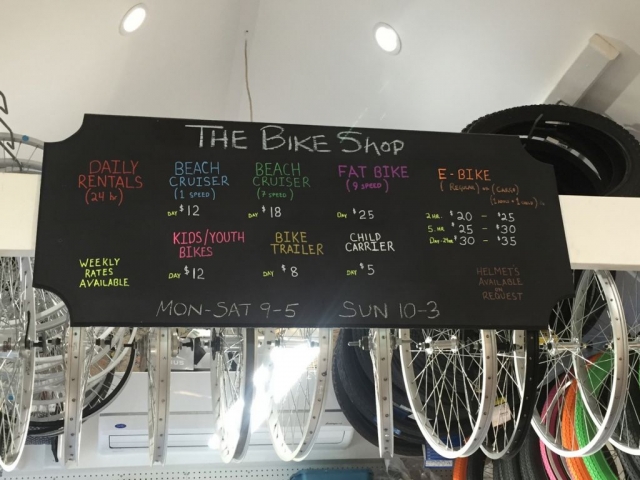 THE BIKE SHOP
DAILY
RENTALS
(24 hr)
BEACH
CRUISER
(1 SPEED)
DAY $12
BEACH
CRUISER
(7 SPEED)
DAY $18
FAT BIKE
(9 SPEED)
DAY $25
E-BIKE
(REGULAR) or (CARGO)
2 HR. $20 - $25
5. HR $25 - $30
DAY-24HR $30 - $35
WEEKLY
RATES
AVAILABLE
KIDS/YOUTH
BIKES
DAY $12
BIKE
TRAILER
DAY $8
CHILD
CARRIER
DAY $5
HELMETS
AVAILABLE
REQUEST
MON-SAT 9-5 SUN 10-3